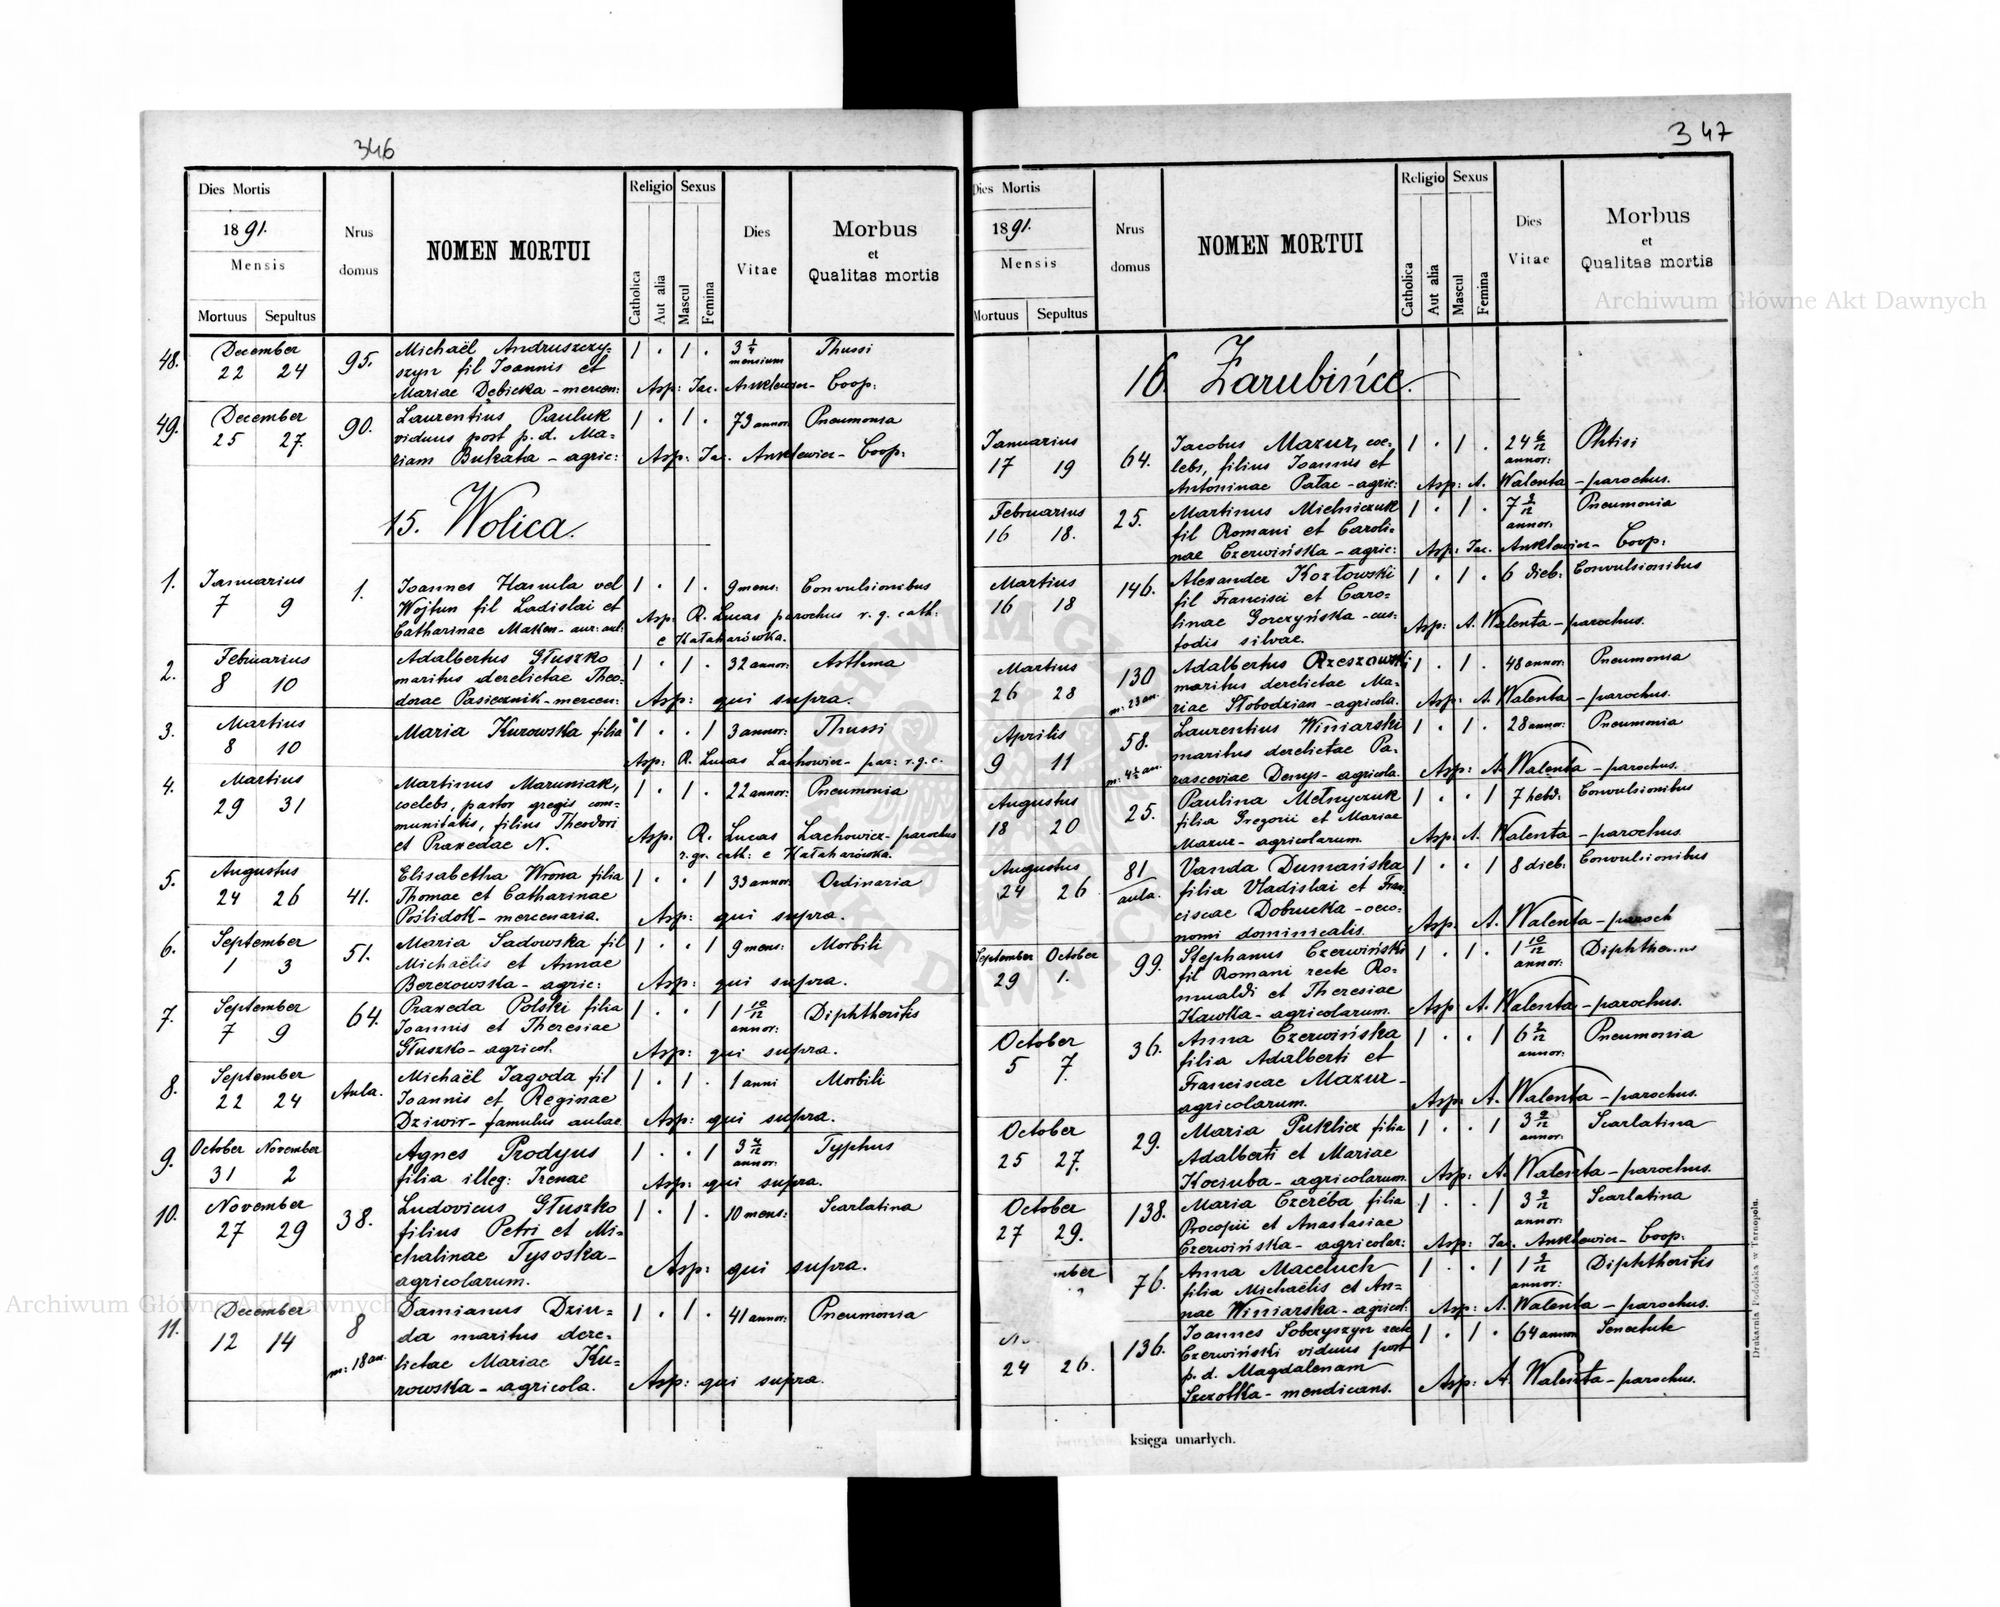 346
Dies Mortis
1891.
Mensis
Mortuus Sepultus
Nrus
domus
NOMEN MORTUI
Religio
Catholica
Aut alia
Sexus
Mascul
Femina
Dies
Vitae
Morbus
et
Qualitas mortis
48. December 22 24 95. Michaël Andruszczy-
szyn fil Joannis et
Mariae Dębicka - mercen:
1 . 1 . 3 1/4 mensium Thussi
Asp: Jac. Anklewicz - Coop:
49. December 25 27. 90. Laurentius Pauluk
viduus post p. d. Ma-
riam Bukata - agric:
1 . 1 . 73 annor: Pneumonia
Asp: Jac. Anklewicz - Coop:
15. Wolica.
1. Januarius 7 9 1. Joannes Hamula vel
Wojtun fil Ladislai et
Catharinae Maken - aur: aul:
1 . 1 . 9 mens: Convulsionibus
Asp: R. Lucas parochus r. g. cath:
e Kałaharówka.
2. Februarius 8 10 Adalbertus Głuszko
maritus derelictae Theo-
dorae Pasiecznik - mercen:
1 . 1 . 32 annor: Asthma
Asp: qui supra.
3. Martius 8 10 Maria Kurowska filia
1 . . 1 3 annor: Thussi
Asp: R. Lucas Lachowicz - par: r. g. c.
4. Martius 29 31 Martinus Maruniak,
coelebs, pastor gregis com-
munitatis, filius Theodori
et Praxedae N.
1 . 1 . 22 annor: Pneumonia
Asp: R. Lucas Lachowicz - parochus
r. gr. cath: e Kałaharówka.
5. Augustus 24 26 41. Elisabetha Wrona filia
Thomae et Catharinae
Poślidok - mercenaria.
1 . . 1 33 annor: Ordinaria
Asp: qui supra.
6. September 1 3 51. Maria Sadowska fil
Michaëlis et Annae
Berezowska - agric:
1 . . 1 9 mens: Morbili
Asp: qui supra.
7. September 7 9 64. Praxeda Polski filia
Joannis et Theresiae
Głuszko - agricol.
1 . . 1 1 10/12 annor: Diphtheritis
Asp: qui supra.
8. September 22 24 Aula. Michaël Jagoda fil
Joannis et Reginae
Dziwir - famulus aulae
1 . 1 . 1 anni Morbili
Asp: qui supra.
9. October November 31 2 Agnes Prodyus
filia illeg: Irenae
1 . . 1 annor: Typhus
Asp: qui supra.
10. November 27 29 38. Ludovicus Głuszko
filius Petri et Mi-
chalinae Tysoska -
agricolarum.
1 . 1 . 10 mens: Scarlatina
Asp: qui supra.
11. December 12 14 8 m: 18 an. Damianus Dziu-
da maritus dere-
lictae Mariae Ku-
rowska - agricola.
1 . 1 . 41 annor: Pneumonia
Asp: qui supra.
347
Dies Mortis
1891.
Mensis
Mortuus Sepultus
Nrus
domus
NOMEN MORTUI
Religio
Catholica
Aut alia
Sexus
Mascul
Femina
Dies
Vitae
Morbus
et
Qualitas mortis
16. Zarubińce.
Januarius 17 19 64. Jacobus Mazur, coe-
lebs, filius Joannis et
Antoninae Pałac - agric:
1 . 1 . 24 6/12 annor: Phtisi
Asp: A. Walenta - parochus.
Februarius 16 18. 25. Martinus Mielniczuk
fil Romani et Caroli-
nae Czerwińska - agric:
1 . 1 . 7 annor: Pneumonia
Asp: Jac. Anklewicz - Coop:
Martius 16 18 146. Alexander Kozłowski
fil Francisci et Caro-
linae Gorczyńska - cus-
todis silvae.
1 . 1 . 6 dieb: Convulsionibus
Asp: A. Walenta - parochus.
Martius 26 28 130 m: 23 an. Adalbertus Rzeszowski
maritus derelictae Ma-
riae Słobodzian - agricola.
1 . 1 . 48 annor: Pneumonia
Asp: A. Walenta - parochus.
Aprilis 9 11 58. m: 4 1/2 an. Laurentius Winiarski
maritus derelictae Pa-
rasceviae Demys - agricola.
1 . 1 . 28 annor: Pneumonia
Asp: A. Walenta - parochus.
Augustus 18 20 25. Paulina Melnyczuk
filia Gregorii et Mariae
Mazur - agricolarum.
1 . . 1 7 hebd: Convulsionibus
Asp: A. Walenta - parochus.
Augustus 24 26 81 aula. Vanda Dumańska
filia Vladislai et Fran-
ciscae Dobrucka - oeco-
nomi dominicalis.
1 . . 1 8 dieb: Convulsionibus
Asp: A. Walenta - paroch
September October 29 1. 99. Stephanus Czerwiński
fil Romani recte Ro-
mualdi et Theresiae
Kawka - agricolarum.
1 . 1 . 1 10/12 annor:
Asp: A. Walenta - parochus.
October 5 7. 36. Anna Czerwińska
filia Adalberti et
Franciscae Mazur -
agricolarum.
1 . . 1 6 annor: Pneumonia
Asp: A. Walenta - parochus.
October 25 27. 29. Maria Puklicz filia
Adalberti et Mariae
Kociuba - agricolarum.
1 . . 1 3 annor: Scarlatina
Asp: A. Walenta - parochus.
October 27 29. 138. Maria Czeréba filia
Procopii et Anastasiae
Czerwińska - agricolar:
1 . . 1 3 annor: Scarlatina
Asp: Jac. Anklewicz - Coop:
mber 76. Anna Maceluch
filia Michaëlis et An-
nae Winiarska - agricol:
1 . . 1 1 annor: Diphtheritis
Asp: A. Walenta - parochus.
24 26. 136. Joannes Sobczyszyn recte
Czerwiński viduus post
p. d. Magdalenam
Szczotka - mendicans.
1 . 1 . 64 annor Senectute
Asp: A. Walenta - parochus.
księga umarłych.
Drukarnia Podolska w Tarnopolu.
Archiwum Główne Akt Dawnych
Archiwum Główne Akt Dawnych